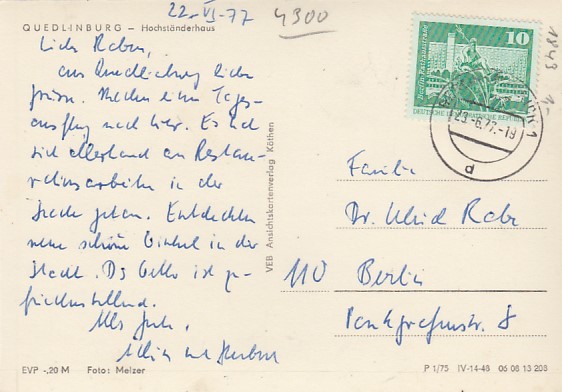 22. VI. 77
4300
QUEDLINBURG – Hochständerhaus
10
DEUTSCHE DEMOKRATISCHE REPUBLIK
1843
23.-6.77.-19
d
Liebe Rabes,
aus Quedlinburg liebe
Grüsse. Machen einen Tages-
ausflug nach hier. Es hat
sich allerhand an Restau-
rationsarbeiten in der
Stadt getan. Entdeckten
neue schöne Winkel in der
Stadt. Ds Cello ist zu-
friedenstellend.
Alles Gute,
und Herbert
VEB Ansichtskartenverlag Köthen
Familie
Dr. Ulrich Rabe
110 Berlin
Pankgrafenstr. 8
EVP -,20 M Foto: Melzer
P 1/75 IV-14-48 06 06 13 208